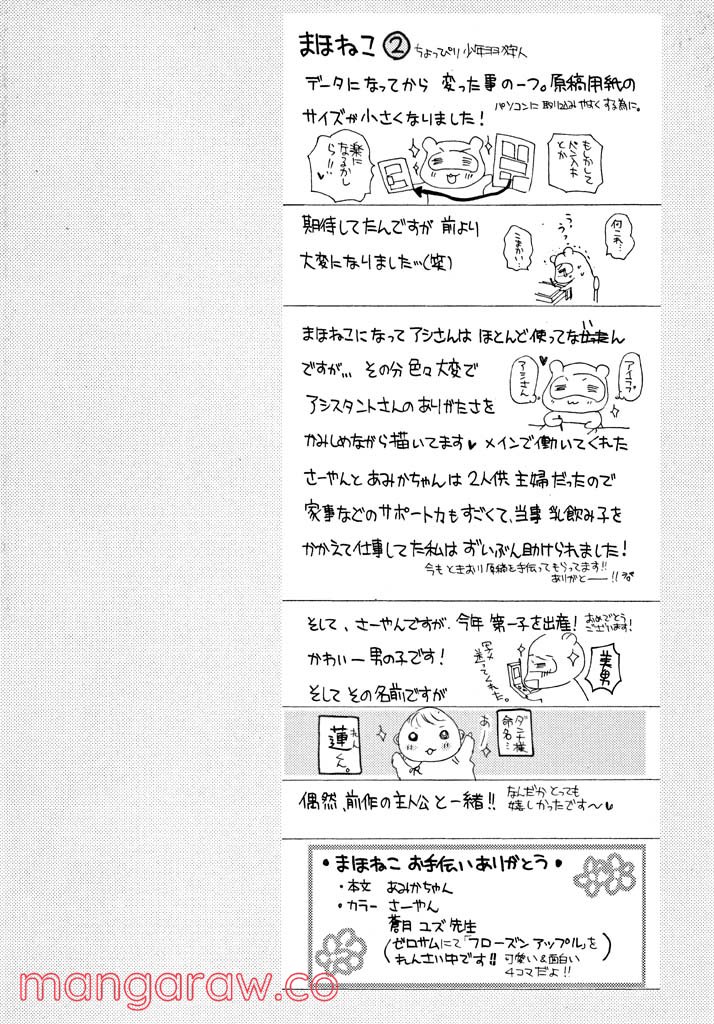 まほねこ ②
データになってから 変った事の一つ。原稿用紙の
パソコンに取り込みやすくする為に。
サイズが小さくなりました!
もしかして
ペン入れ
とか
楽に
なるかし
ら!!
期待してたんですが 前より
大変になりました…(笑)
何これ…
うっ
こまかい…
まほねこになって アシさんは ほとんど使ってないん
ですが,,, その分 色々大変で
アシスタントさんの ありがたさを
アシさん
かみしめながら描いてます♥ メインで働いてくれた
さーやんと あみかちゃんは 2人供 主婦だったので
家事などのサポート力もすごくて、当事 乳飲み子を
かかえて仕事してた私は ずいぶん助けられました!
今も ときおり 原稿を手伝ってもらってます!!
ありがとーー!!
そして、さーやんですが、今年 第一子を出産!
おめでとう
ございます!
かわいー 男の子です!
写メ
送ってくれた。
美男
そして その名前ですが
ダンナ様
命名…
あー
蓮くん。
れん
偶然、前作の主人公と一緒!!
なんだか とっても
嬉しかったです〜♥
・まほねこ お手伝いありがとう・
・本文 あみかちゃん
・カラー さーやん
蒼月 ユズ 先生
(ゼロサムにて「フローズン アップル」を
れんさい中です!! 可愛い&面白い
4コマだよ!!)
mangaraw.co